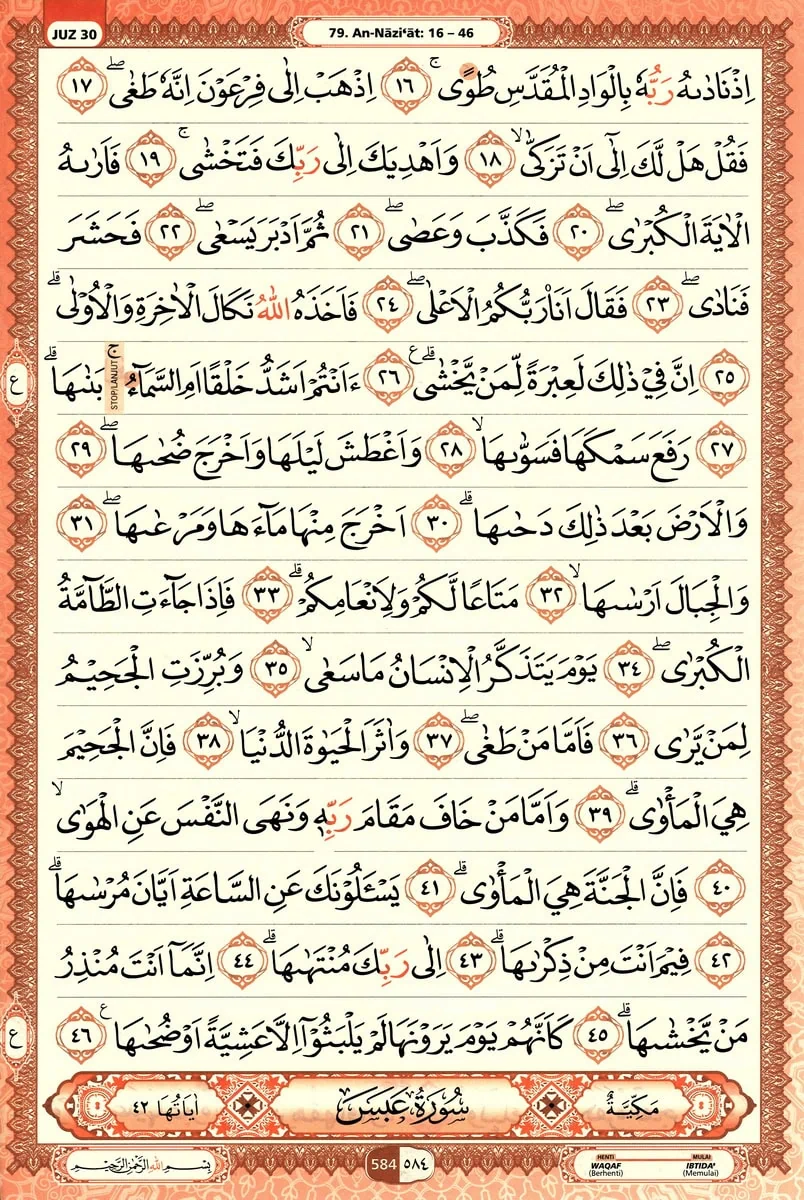 JUZ 30
79. An-Nāzi‘āt: 16 – 46
اِذْ نَادٰىهُ رَبُّهٗ بِالْوَادِ الْمُقَدَّسِ طُوًىۚ ١٦ اِذْهَبْ اِلٰى فِرْعَوْنَ اِنَّهٗ طَغٰىۖ ١٧
فَقُلْ هَلْ لَّكَ اِلٰٓى اَنْ تَزَكّٰىۙ ١٨ وَاَهْدِيَكَ اِلٰى رَبِّكَ فَتَخْشٰىۚ ١٩ فَاَرٰىهُ
الْاٰيَةَ الْكُبْرٰىۖ ٢٠ فَكَذَّبَ وَعَصٰىۖ ٢١ ثُمَّ اَدْبَرَ يَسْعٰىۖ ٢٢ فَحَشَرَ
فَنَادٰىۖ ٢٣ فَقَالَ اَنَا۠ رَبُّكُمُ الْاَعْلٰىۖ ٢٤ فَاَخَذَهُ اللّٰهُ نَكَالَ الْاٰخِرَةِ وَالْاُوْلٰىۗ
٢٥ اِنَّ فِيْ ذٰلِكَ لَعِبْرَةً لِّمَنْ يَّخْشٰىۗ ࣖ ٢٦ ءَاَنْتُمْ اَشَدُّ خَلْقًا اَمِ السَّمَاۤءُ ۚ STOP/LANJUT بَنٰىهَاۗ
ع
٢٧ رَفَعَ سَمْكَهَا فَسَوّٰىهَاۙ ٢٨ وَاَغْطَشَ لَيْلَهَا وَاَخْرَجَ ضُحٰىهَاۖ ٢٩
وَالْاَرْضَ بَعْدَ ذٰلِكَ دَحٰىهَاۗ ٣٠ اَخْرَجَ مِنْهَا مَاۤءَهَا وَمَرْعٰىهَاۖ ٣١
وَالْجِبَالَ اَرْسٰىهَاۙ ٣٢ مَتَاعًا لَّكُمْ وَلِاَنْعَامِكُمْۗ ٣٣ فَاِذَا جَاۤءَتِ الطَّاۤمَّةُ
الْكُبْرٰىۖ ٣٤ يَوْمَ يَتَذَكَّرُ الْاِنْسَانُ مَا سَعٰىۙ ٣٥ وَبُرِّزَتِ الْجَحِيْمُ
لِمَنْ يَّرٰى ٣٦ فَاَمَّا مَنْ طَغٰىۖ ٣٧ وَاٰثَرَ الْحَيٰوةَ الدُّنْيَاۙ ٣٨ فَاِنَّ الْجَحِيْمَ
هِيَ الْمَأْوٰىۗ ٣٩ وَاَمَّا مَنْ خَافَ مَقَامَ رَبِّهٖ وَنَهَى النَّفْسَ عَنِ الْهَوٰىۙ
٤٠ فَاِنَّ الْجَنَّةَ هِيَ الْمَأْوٰىۗ ٤١ يَسْـَٔلُوْنَكَ عَنِ السَّاعَةِ اَيَّانَ مُرْسٰىهَاۗ
٤٢ فِيْمَ اَنْتَ مِنْ ذِكْرٰىهَاۗ ٤٣ اِلٰى رَبِّكَ مُنْتَهٰىهَاۗ ٤٤ اِنَّمَآ اَنْتَ مُنْذِرُ
مَنْ يَّخْشٰىهَاۗ ٤٥ كَاَنَّهُمْ يَوْمَ يَرَوْنَهَا لَمْ يَلْبَثُوْٓا اِلَّا عَشِيَّةً اَوْ ضُحٰىهَا ࣖ ٤٦
ع
مَكِّيَّةٌ سُوْرَةُ عَبَسَ اٰيَاتُهَا ٤٢
بِسْمِ اللّٰهِ الرَّحْمٰنِ الرَّحِيْمِ
584 ٥٨٤
HENTI WAQAF (Berhenti)
MULAI IBTIDA' (Memulai)